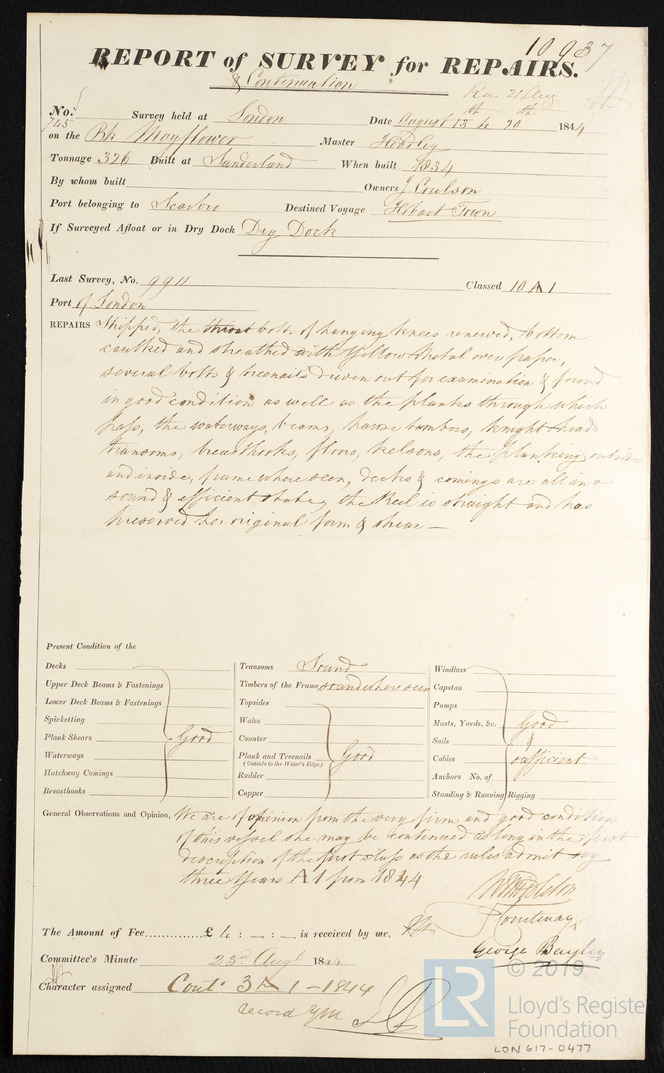 10937
REPORT of SURVEY for REPAIRS.
& Continuation
Rec 21 Aug
No. 745 Survey held at London Date August 13th to 20th 1844
on the Bk Mayflower Master
Tonnage 326 Built at Sunderland When built 1834
By whom built Owners J Coulson
Port belonging to Scarbro Destined Voyage Hobart Town
If Surveyed Afloat or in Dry Dock Dry Dock
Last Survey, No. 9911 Classed 10 A 1
Port of London
REPAIRS Shipped, the throat bolts of hanging knees renewed, bottom
caulked and sheathed with Yellow Metal over paper,
several bolts & treenails driven out for examination & found
in good condition as well as the planks through which
pass, the waterways, beams, hawse timbers, knight head
transoms, breasthooks, floors, kelsons, the planking outside
and inside, frame where seen, decks & comings are all in a
sound & efficient state, the Keel is straight and has
preserved her original form & shear —
Present Condition of the
Decks
Upper Deck Beams & Fastenings
Lower Deck Beams & Fastenings
Spirketting
Plank Shears Good
Waterways
Hatchway Comings
Breasthooks
Transoms Sound
Timbers of the Frame sound where seen
Topsides
Wales
Counter
Plank and Treenails Good
(Outside to the Water's Edge)
Rudder
Copper
Windlass
Capstan
Pumps
Masts, Yards, &c. Good
Sails &
Cables sufficient
Anchors No. of
Standing & Running Rigging
General Observations and Opinion, We are of opinion from the very firm and good condition
of this vessel she may be continued as long in the first
description of the first class as the rules admit say
three Years A1 from 1844
Courtenay
George Bayley
The Amount of Fee..............£ : — : — is received by me,
Committee's Minute 23rd Augt 1844
Character assigned Cont. 3 A 1 - 1844
record YM
© 2019
LR
Lloyd's Register
Foundation
LON 617-0477